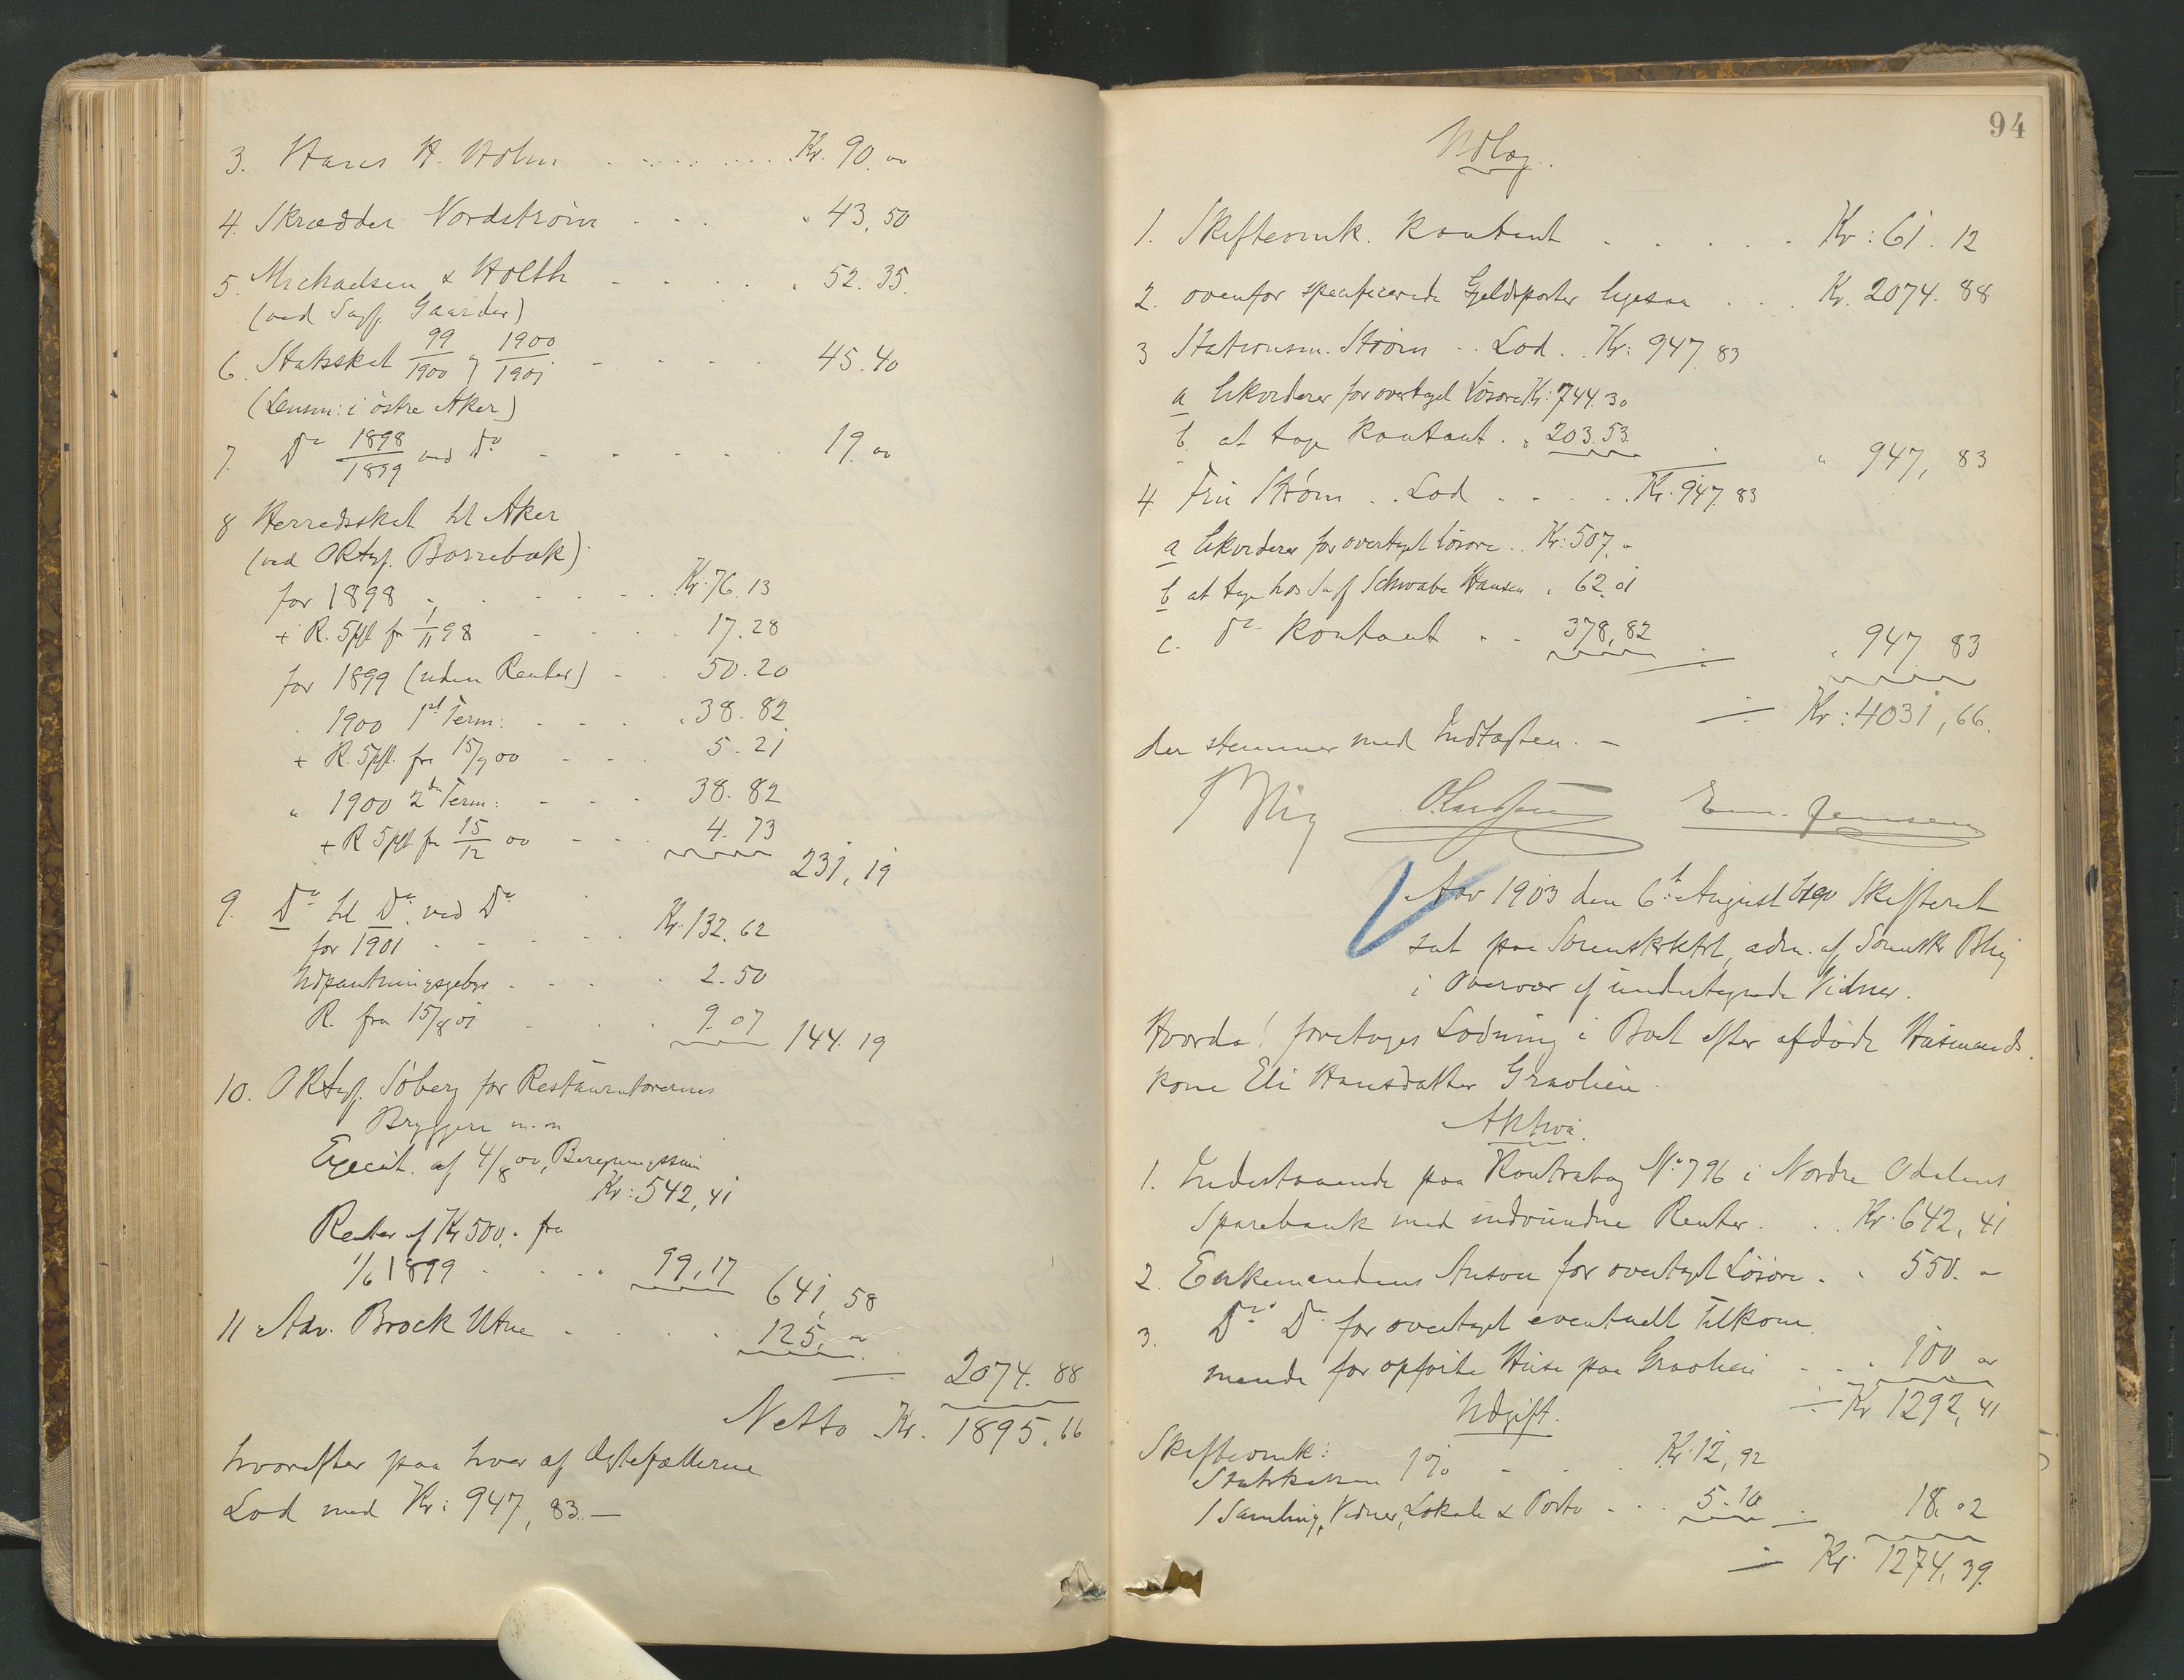 3. Hans H. Holm . . . . . . . . Kr. 90.00
4. Skrædder Nordstrøm - - . „ 43,50
5. Michaelsen & Holth - . . . „ 52.35.
(ved Sagf. Gaarder)
6. Statsskat 99/1900 og 1900/1901 - . . . 45.40
(Lensm: i østre Aker)
7. Do 1898/1899 ved Do - . . . . 19.00
8 Herredsskat til Aker
(ved ORtsf. Borrebæk):
for 1898 - . . . . . Kr. 76.13
+ R. 5 pCt fr 1/11 98 - . . . 17.28
for 1899 (uden Renter) - . 50.20
„ 1900 1st Term: - . . „ 38.82
+ R. 5 pCt. fra 15/9 00 - - . 5.21
„ 1900 2den Term: - . . 38.82
+ R 5 pCt fra 15/12 00 - - . 4.73
231,19
9. Do til Do ved Do
for 1901 - - . . . . Kr. 132.62
Udpantningsgebyr . . . . 2.50
R. fra 15/8 01 . . . 9.07 144.19
10. ORtsf. Søberg for Restauratørernes
Bryggeri m.m
Execut. af 4/8 00,
Kr: 542,41
Renter af Kr 500,- fra
1/6 1899 . . . . 99,17 641,58
11 Adv. Brock Utne - . . . 125,00
2074.88
Netto Kr. 1895.66
hvorefter paa hver af Ægtefællerne
Lod med Kr: 947,83.-
94
Udlæg.
1. Skifteomk. kontant . . . . . Kr: 61.12
2. ovenfor specificerede Gjeldsposter ligesaa . . . Kr. 2074.88
3 Stationsm. Strøm . . Lod . . Kr: 947.83
a likviderer for overtaget Løsøre Kr: 744.30
b at tage kontant . „ 203.53
„ 947,83
4 Fru Strøm . . Lod . . . . Kr. 947.83
a likviderer for overtaget Løsøre . . Kr: 507,-
b at tage hos Sagf Schwabe Hansen „ 62.01
c. do kontant . . 378,82
„ 947 83
÷ Kr: 4031,66.
der stemmer med Indtægten. -
Blig Em. Jensen
Aar 1903 den 6te August blev Skifteret
sat paa Sorenskrktrt, adm. af Sorenskr Blig
i Overvær af undertegnede Vidner.
Hvorda! foretoges Lodning i Boet efter afdøde Husmands
kone Eli Hansdatter Graolien.
Aktiva.
1. Indestaaende paa Kontrabog No 796 i Nordre Odalens
Sparebank med indvundne Renter . . . Kr. 642,41
2. Enkemandens Ansvar for overtaget Løsøre . „ 550.-
3. Do Do for overtaget eventuelt Tilkom
mende for opførte Huse paa Graolien - . . 100 00
÷ Kr 1292,41
Udgift.
Skifteomk:
Statskassen 1% - . . . Kr. 12,92
1 Samling, Vidner, Lokale & Porto - . . 5.10 . 18.02
÷ Kr. 1274,39.